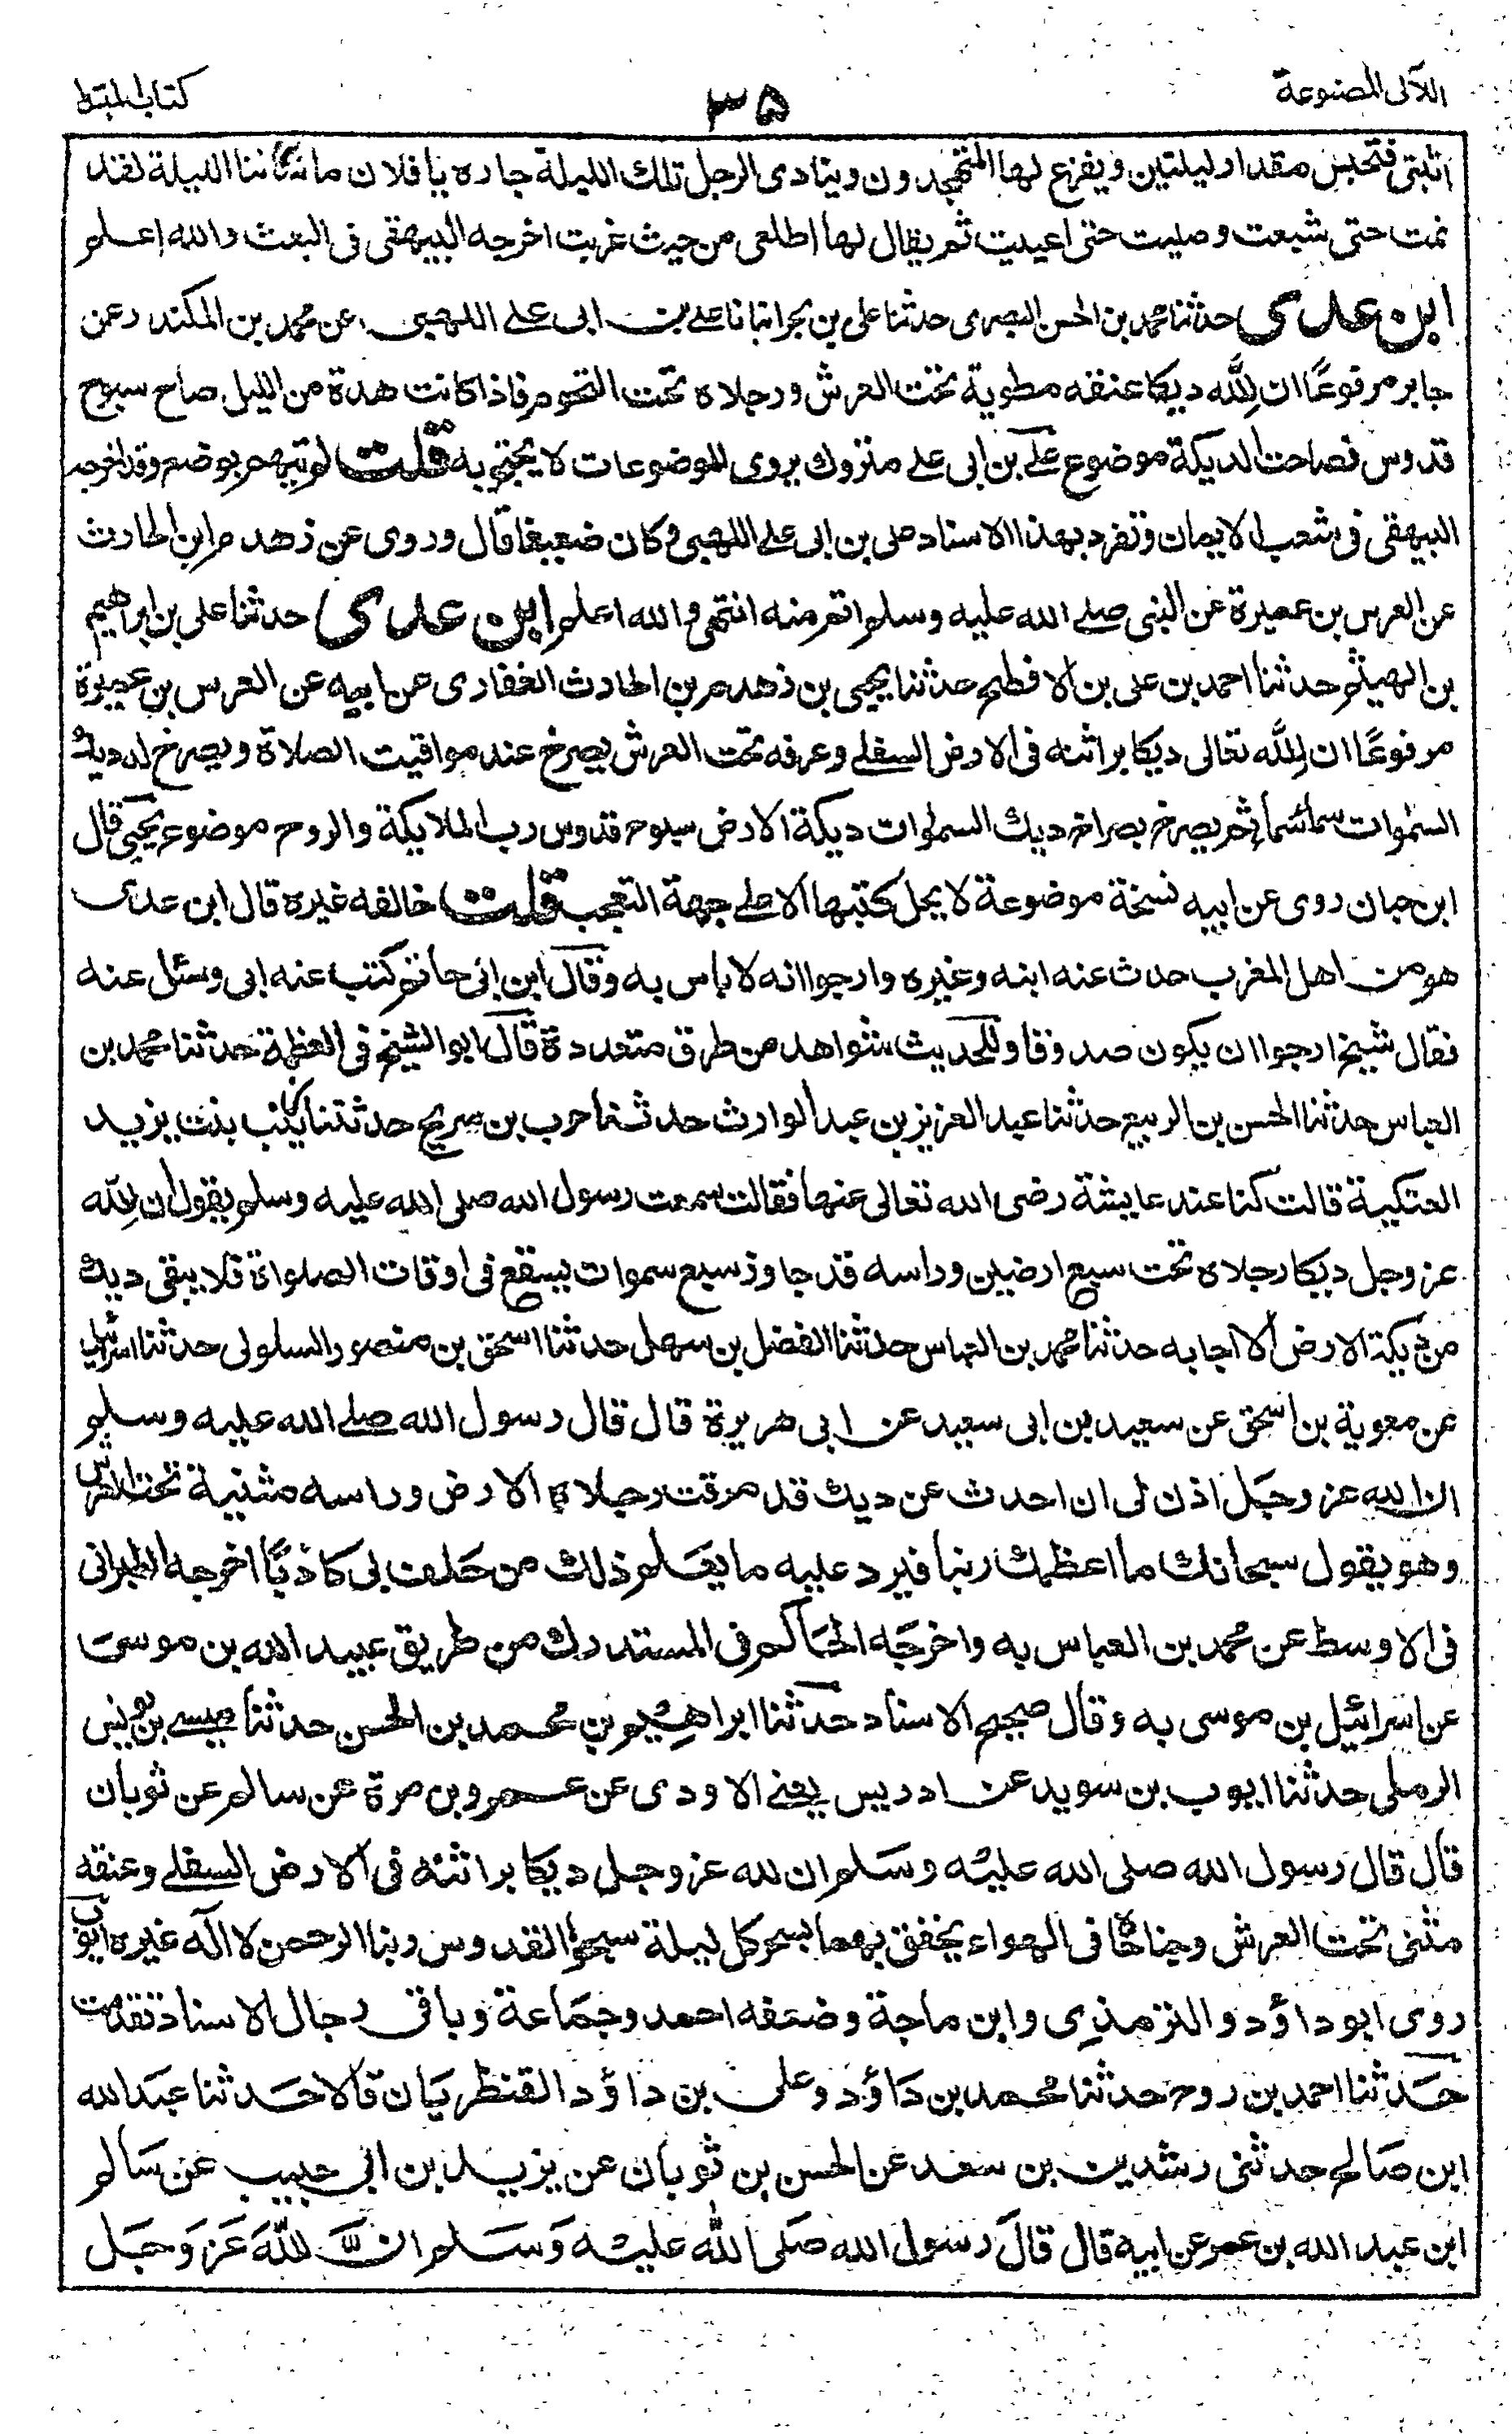 اللآلى المصنوعة
۳۵
كتاب المبتدا
اثبتى فتحبس مقدار ليلتين ويفزع لها المتهجدون وينادى الرجل تلك الليلة جاره يا فلان ما شاننا الليلة لقد
نمت حتى شبعت وصليت حتى اعييت ثم يقال لها اطلعى من حيث غربت اخرجه البيهقى فى البعث والله اعلم
ابن عدى حدثنا محمد بن الحسن البصرى حدثنا على بن بحر انبانا على بن ابى على اللهبى عن محمد بن المكندر عن
جابر مرفوعًا ان لله ديكا عنقه مطوية تحت العرش ورجلاه تحت التخوم فاذا كانت هدة من الليل صاح سبوح
قدوس فصاحت الديكة موضوع على بن ابى على متروك يروى الموضوعات لا يحتج به قلت لم يتهم بوضع وقد اخرجه
البيهقى فى شعب الايمان وتفرد بهذا الاسناد على بن ابى على اللهبى وكان ضعيفا قال وروى عن زهدم ابن الحارث
عن العرس بن عميرة عن النبى صلے الله عليه وسلم اتم منه انتهى والله اعلم ابن عدى حدثنا على بن ابراهيم
بن الهيثم حدثنا احمد بن على بن الافطح حدثنا يحيى بن زهدم بن الحارث الغفارى عن ابيه عن العرس بن عميرة
مرفوعًا ان لله تعالى ديكا براثنه فى الارض السفلے وعرفه تحت العرش يصرخ عند مواقيت الصلاة ويصرخ له ديك
السموات سماء سماء ثم يصرخ بصراخ ديك السموات ديكة الارض سبوح قدوس رب الملايكة والروح موضوع يحيى قال
ابن حبان روى عن ابيه نسخة موضوعة لا يحل كتبها الا على جهة التعجب قلت خالفه غيره قال ابن عدى
هو من اهل المغرب حدث عنه ابنه وغيره وارجوا انه لا باس به وقال ابن ابى حاتم كتب عنه ابى وسئل عنه
فقال شيخ ارجوا ان يكون صدوقا وللحديث شواهد من طرق متعددة قال ابو الشيخ فى العظمة حدثنا محمد بن
العباس حدثنا الحسن بن الربيع حدثنا عبد العزيز بن عبد الوارث حدثنا حرب بن سريج حدثتنا زينب بنت يزيد
العتكية قالت كنا عند عايشة رضى الله تعالى عنها فقالت سمعت رسول الله صلى الله عليه وسلم يقول ان لله
عز وجل ديكا رجلاه تحت سبع ارضين وراسه قد جاوز سبع سموات يسقع فى اوقات الصلواة فلا يبقى ديك
من ديكة الارض الا اجابه حدثنا محمد بن العباس حدثنا الفضل بن سهل حدثنا اسحق بن منصور السلولى حدثنا اسرائيل
عن معوية بن اسحق عن سعيد بن ابى سعيد عن ابى هريرة قال قال رسول الله صلے الله عليه وسلم
ان الله عز وجل اذن لى ان احدث عن ديك قد مرقت رجلاه الارض وراسه مثنية تحت العرش
وهو يقول سبحانك ما اعظمك ربنا فيرد عليه ما يعلم ذلك من حلف بى كاذبًا اخرجه الطبرانى
فى الاوسط عن محمد بن العباس به واخرجه الحاكم فى المستدرك من طريق عبيد الله بن موسى
عن اسرائيل بن موسى به وقال صحيح الاسناد حدثنا ابراهيم بن محمد بن الحسن حدثنا عيسے بن يونس
الرملى حدثنا ايوب بن سويد عن ادريس يعنے الاودى عن عمرو بن مرة عن سالم عن ثوبان
قال قال رسول الله صلى الله عليه وسلم ان لله عز وجل ديكا براثنه فى الارض السفلے وعنقه
مثنى تحت العرش وجناحاه فى الهواء يخفق بهما بسحر كل ليلة سبحوا القدوس ربنا الرحمن لا اله غيره ايوب
روى ابو داؤد والترمذى وابن ماجة وضعفه احمد وجماعة وباقى رجال الاسناد تقدمت
حدثنا احمد بن روح حدثنا محمد بن داؤد وعلى بن داؤد القنطريان قالا حدثنا عبد الله
ابن صالح حدثنى رشدين بن سعد عن الحسن بن ثوبان عن يزيد بن ابى حبيب عن سالم
ابن عبد الله بن عمر عن ابيه قال قال رسول الله صلى الله عليه وسلم ان لله عز وجل